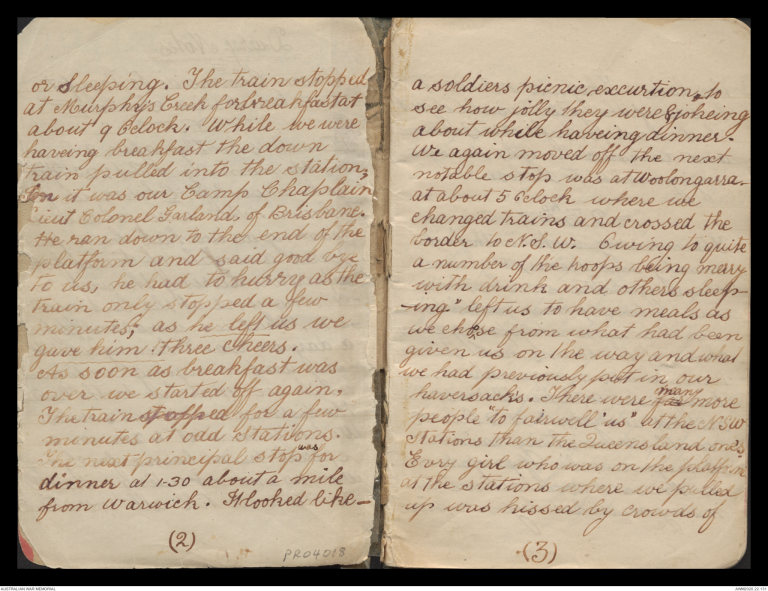 or sleeping. The train stopped
at Murphy's Creek for breakfast at
about 9 Oclock. While we were
haveing breakfast the down
train pulled into the station,
in it was our Camp Chaplain
Lieut Colonel Garland, of Brisbane.
He ran down to the end of the
platform and said good bye
to us, he had to hurry as the
train only stopped a few
minutes; as he left us we
gave him three cheers.
As soon as breakfast was
over we started off again.
The train stopped for a few
minutes at odd stations.
The next principal stop was for
dinner at 1-30 about a mile
from Warwick. It looked like—
(2)
PR04018
a soldiers picnic, excurtion, to
see how jolly they were & jokeing
about while haveing dinner.
We again moved off the next
notable stop was at Woolongarra.
at about 5 Oclock where we
changed trains and crossed the
border to N.S.W. Owing to quite
a number of the troops being merry
with drink and others sleep-
-ing" left us to have meals as
we chose from what had been
given us on the way and what
we had previously put in our
haversacks. There were many more
people "to fairwell us" at the N.SW
stations than the Queensland one's
Evry girl who was on the platform
at the stations where we pulled
up was kissed by crowds of
(3)
AUSTRALIAN WAR MEMORIAL